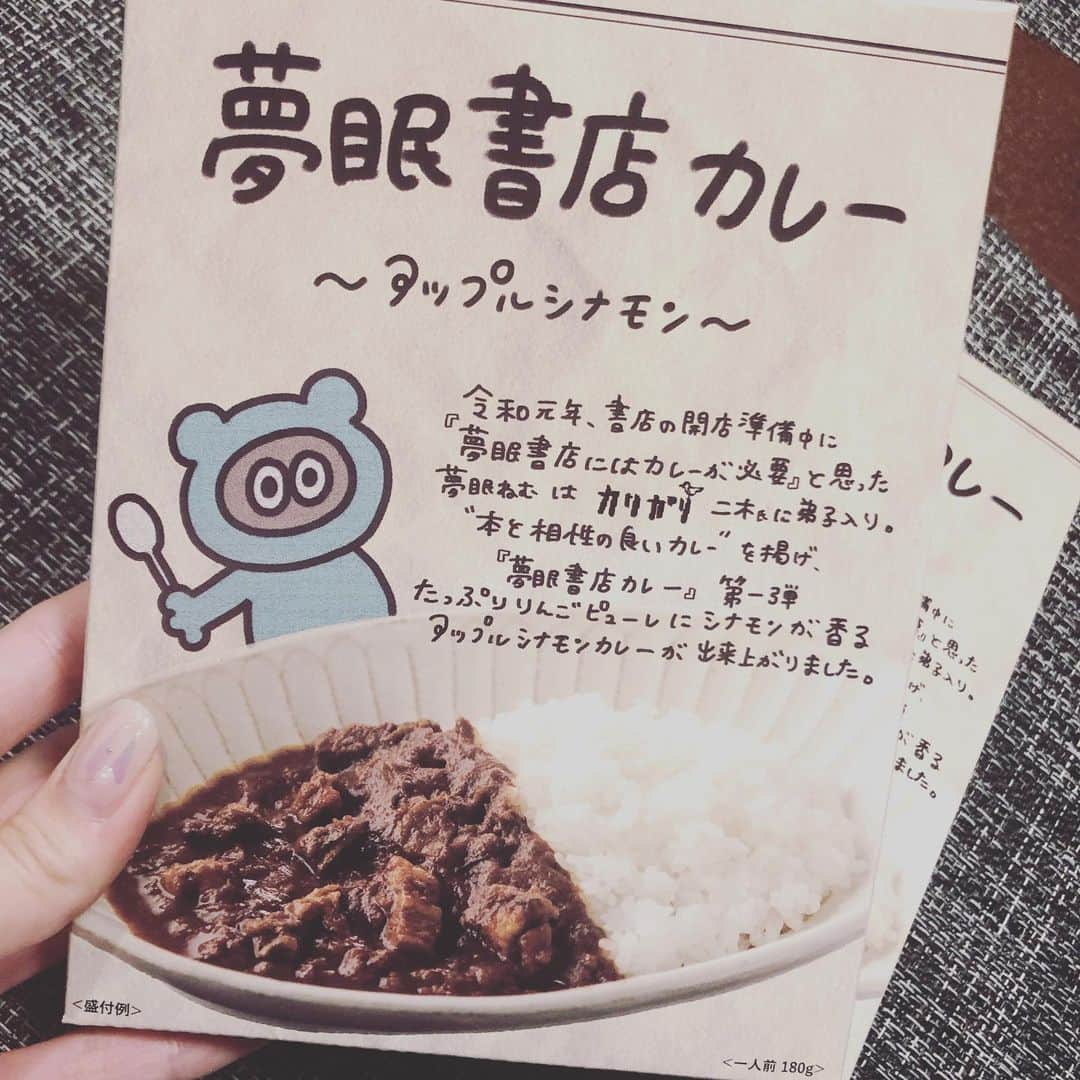 夢眠書店カレー
〜タップルシナモン〜
令和元年、書店の開店準備中に
『夢眠書店にはカレーが必要』と思った
夢眠ねむ は カリガリ 二木氏に弟子入り。
"本と相性の良いカレー"を掲げ、
『夢眠書店カレー』 第一弾
たっぷりりんごピューレにシナモンが香る
タップルシナモンカレーが出来上がりました。
<盛付例>
<一人前 180g>
カレー
中に
と思った
弟子入り。
げ、
が香る
ました。